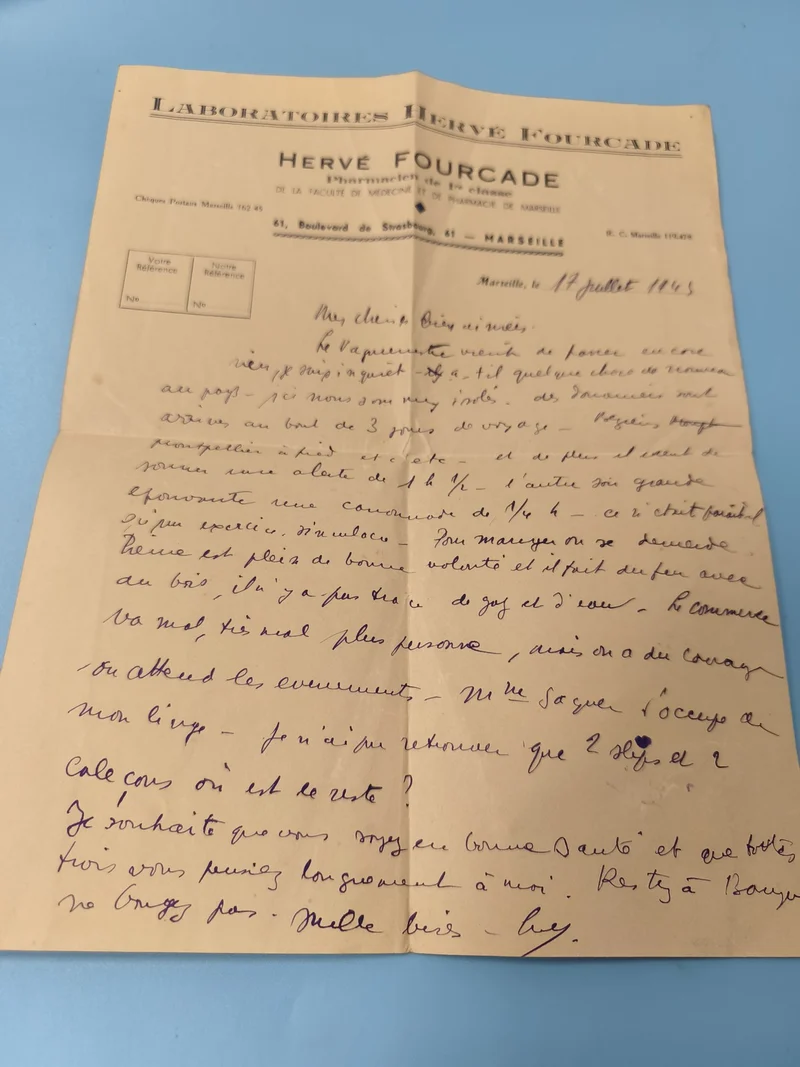 LABORATOIRES HERVÉ FOURCADE
HERVÉ FOURCADE
Pharmacien de 1re classe
DE LA FACULTÉ DE MÉDECINE ET DE PHARMACIE DE MARSEILLE
Chèques Postaux Marseille 762 45
61, Boulevard de Strasbourg, 61 — MARSEILLE
R. C. Marseille
Votre Référence
Notre Référence
No
No
Marseille, le 17 juillet 1943
Mes chéries bien aimées.
Le vient de passer encore
rien, je suis inquiet - y a-t-il quelque chose de nouveau
au pays - ici nous sommes isolés. des sont
arrivés au bout de 3 jours de voyage - Béziers
Montpellier à pied et c'etc - et de plus il vient de
sonner une alerte de 1 h 1/2 - l'autre soir grande
epouvante une canonnade de 1/4 h - ce n'était
qu'un exercice, simulacre - Pour manger on se demande
est plein de bonne volonté et il fait du feu avec
du bois, il n'y a pas trace de gaz et d'eau - Le commerce
va mal, très mal plus personne, mais on a du courage
on attend les evenements - Mme s'occupe de
mon linge - Je n'ai pu retrouver que 2 slips et 2
caleçons où est le reste ?
Je souhaite que vous soyez en bonne santé et que toutes
trois vous pensiez longuement à moi. Restez à
ne bougez pas. Mille bises -